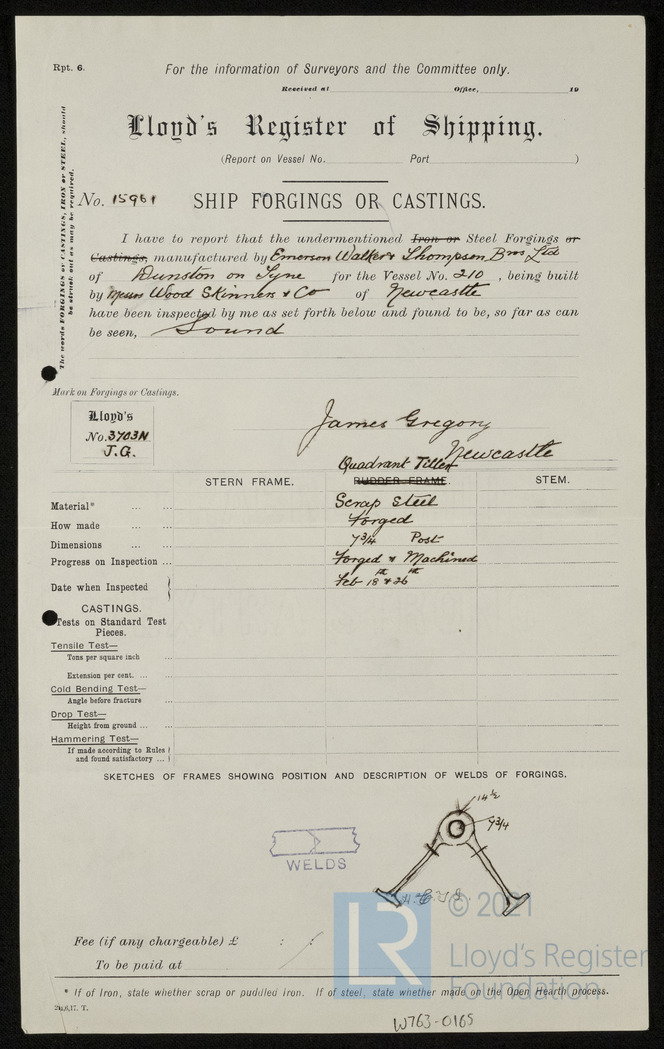 Rpt. 6.
For the information of Surveyors and the Committee only.
Received at Office, 19
Lloyd's Register of Shipping.
(Report on Vessel No. Port )
The words FORGINGS or CASTINGS, IRON or STEEL, should
be struck out as may be required.
No. 15961
SHIP FORGINGS OR CASTINGS.
I have to report that the undermentioned Iron or Steel Forgings or
Castings, manufactured by Emerson Walker & Thompson Bros Ltd
of Dunston on Tyne for the Vessel No. 210 , being built
by Messrs Wood Skinner & Co of Newcastle
have been inspected by me as set forth below and found to be, so far as can
be seen, Sound
Mark on Forgings or Castings.
Lloyd's
No. 3703N
J.G.
James Gregory
Newcastle
Quadrant Tiller
STERN FRAME. RUDDER FRAME. STEM.
Material* ... ... Scrap Steel
How made ... ... Forged
Dimensions ... ... 7 3/4 Post
Progress on Inspection ... Forged & Machined
Date when Inspected Feb 18th & 26th
CASTINGS.
Tests on Standard Test
Pieces.
Tensile Test—
Tons per square inch ...
Extension per cent. ... ...
Cold Bending Test—
Angle before fracture ...
Drop Test—
Height from ground ... ...
Hammering Test—
If made according to Rules
and found satisfactory ...
SKETCHES OF FRAMES SHOWING POSITION AND DESCRIPTION OF WELDS OF FORGINGS.
14 1/2
7 3/4
WELDS
© 2021
LR
Lloyd's Register
Foundation
Fee (if any chargeable) £ : :
To be paid at
* If of Iron, state whether scrap or puddled iron. If of steel, state whether made on the Open Hearth process.
2m,6,17. T.
W763-0165